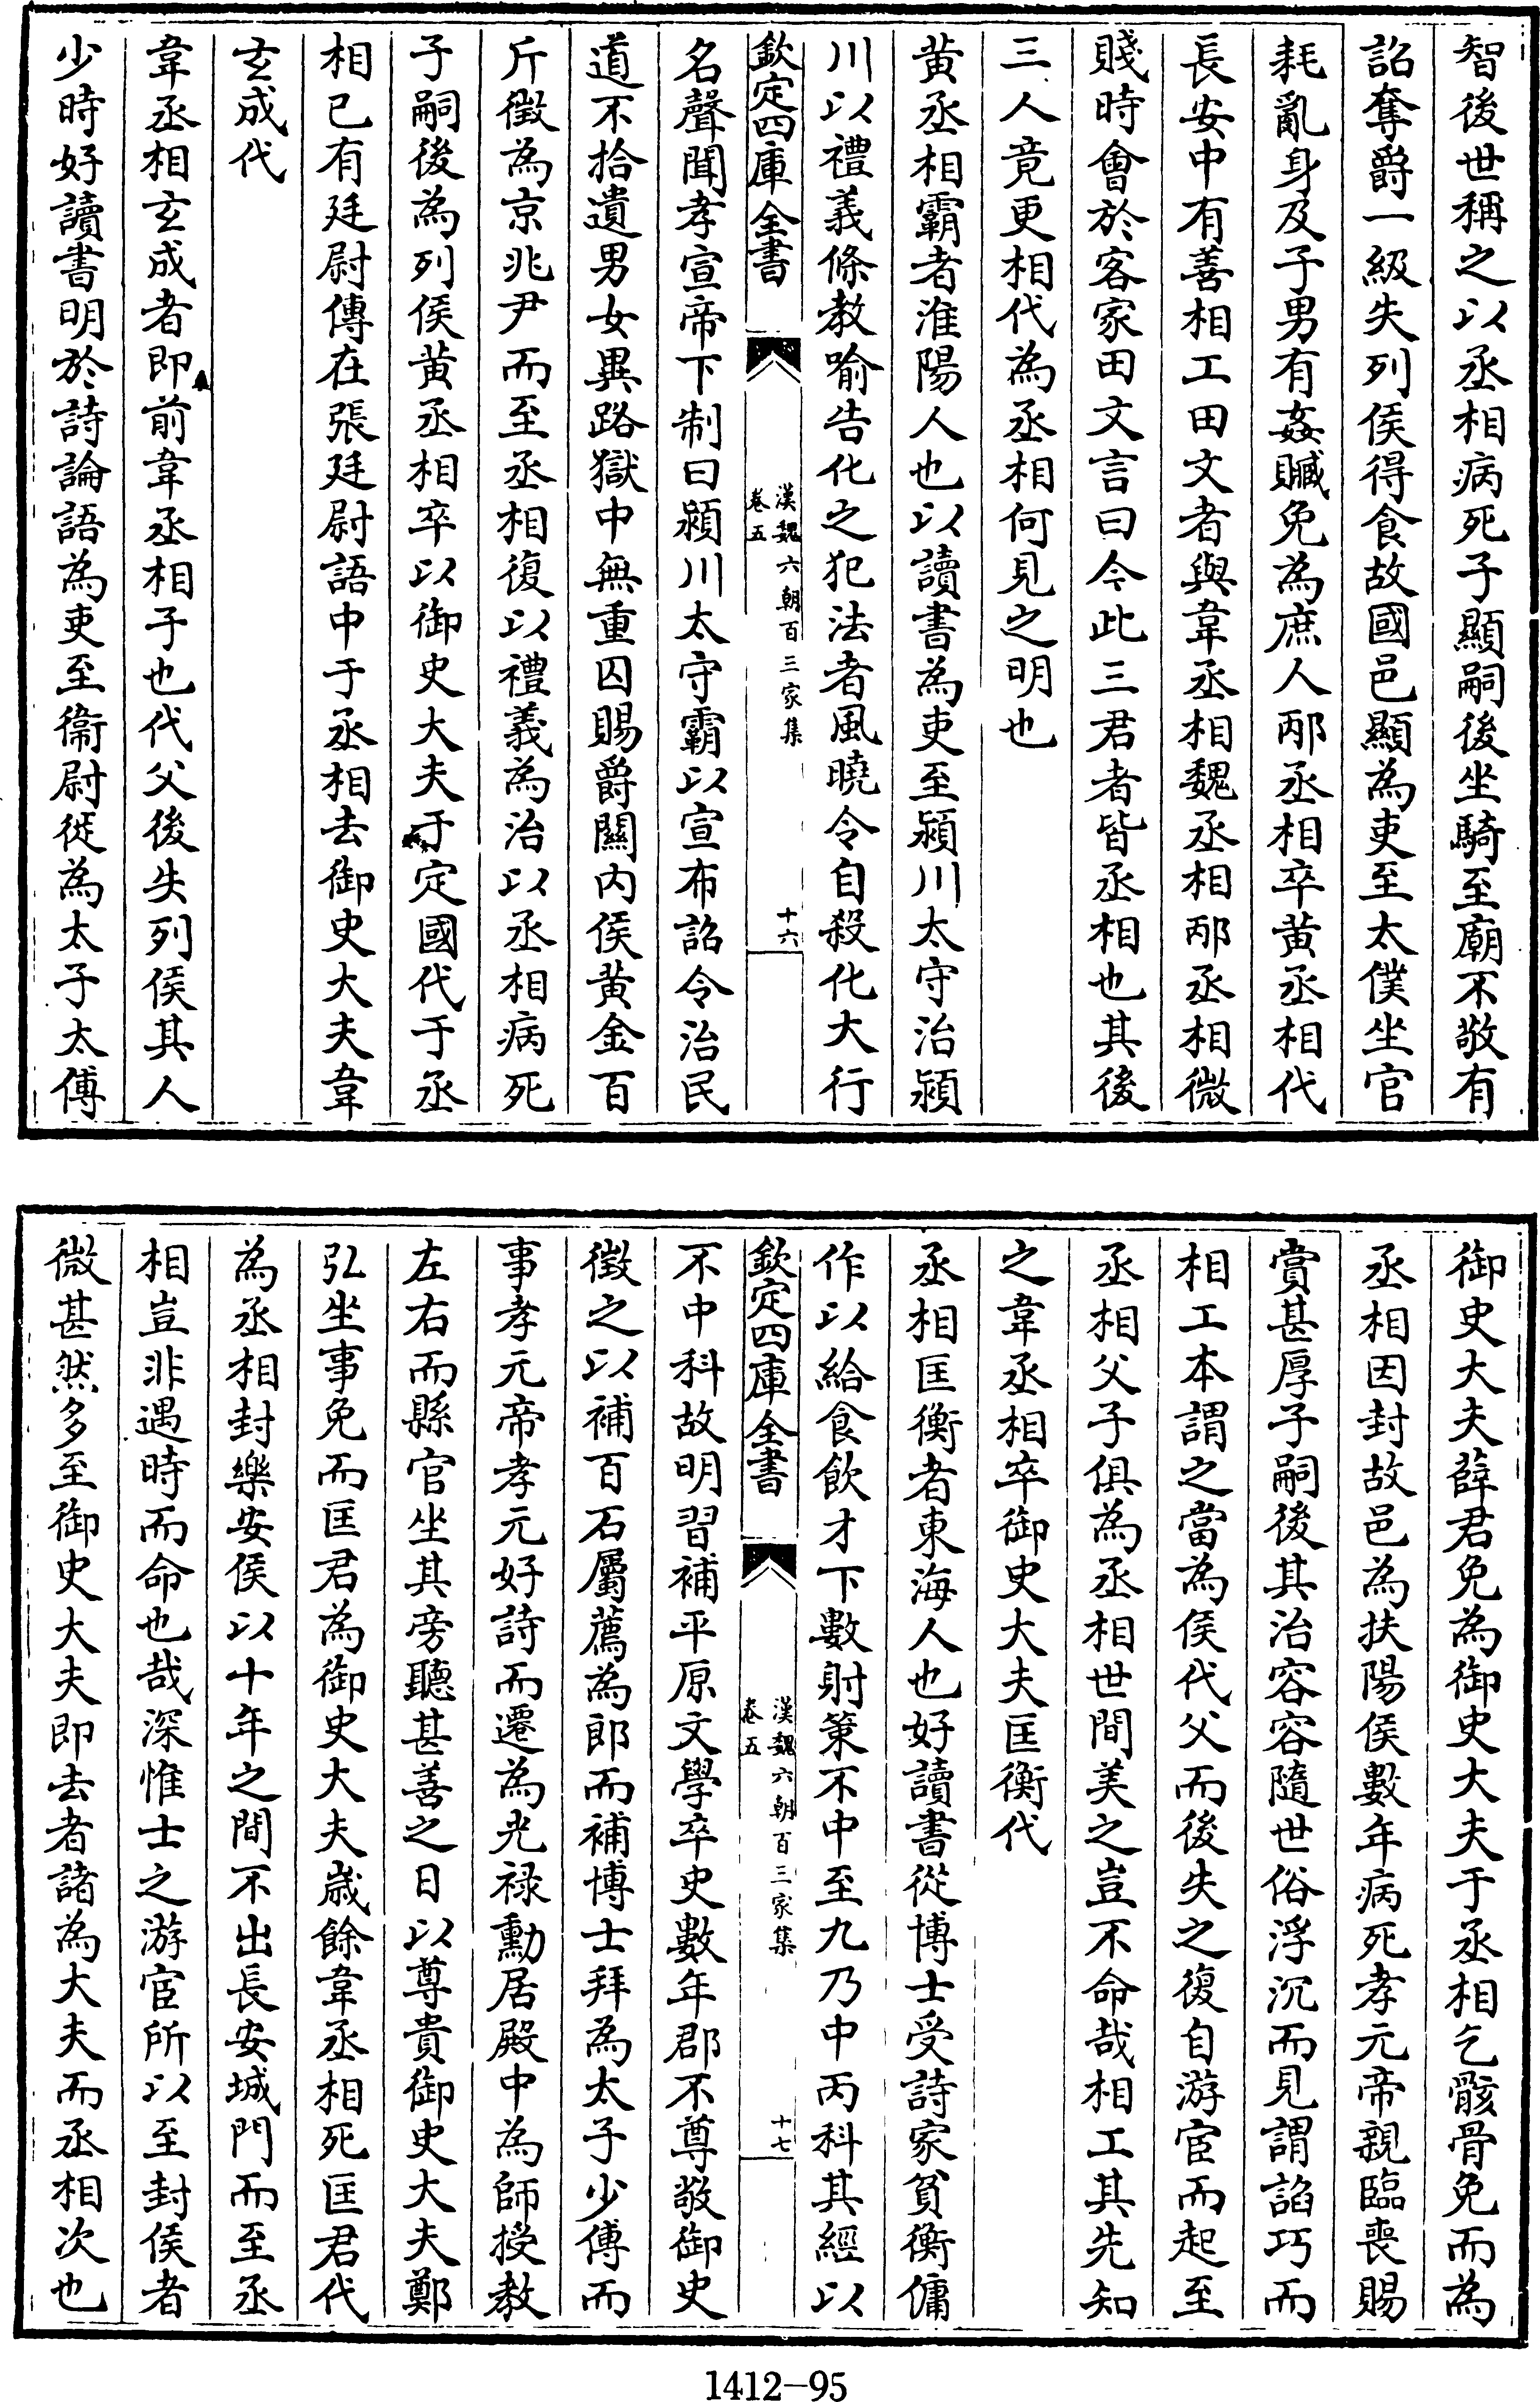 智後世稱之以丞相病死子顯嗣後坐騎至廟不敬有
詔奪爵一級失列侯得食故國邑顯為吏至太僕坐官
耗亂身及子男有姦贓免為庶人邴丞相卒黄丞相代
長安中有善相工田文者與韋丞相魏丞相邴丞相微
賤時會於客家田文言曰今此三君者皆丞相也其後
三人竟更相代為丞相何見之明也
黄丞相霸者淮陽人也以讀書為吏至潁川太守治潁
川以禮義條教喻告化之犯法者風曉令自殺化大行
欽定四庫全書
漢魏六朝百三家集
卷五
十六
名聲聞孝宣帝下制曰潁川太守霸以宣布詔令治民
道不拾遺男女異路獄中無重囚賜爵關内侯黄金百
斤徵為京兆尹而至丞相復以禮義為治以丞相病死
子嗣後為列侯黄丞相卒以御史大夫于定國代于丞
相已有廷尉傳在張廷尉語中于丞相去御史大夫韋
玄成代
韋丞相玄成者即前韋丞相子也代父後失列侯其人
少時好讀書明於詩論語為吏至衞尉徙為太子太傅
御史大夫薛君免為御史大夫于丞相乞骸骨免而為
丞相因封故邑為扶陽侯數年病死孝元帝親臨喪賜
賞甚厚子嗣後其治容容隨世俗浮沉而見謂諂巧而
相工本謂之當為侯代父而後失之復自游宦而起至
丞相父子俱為丞相世間美之豈不命哉相工其先知
之韋丞相卒御史大夫匡衡代
丞相匡衡者東海人也好讀書從博士受詩家貧衡傭
作以給食飲才下數射策不中至九乃中丙科其經以
欽定四庫全書
漢魏六朝百三家集
卷五
十七
不中科故明習補平原文學卒史數年郡不尊敬御史
徵之以補百石屬薦為郎而補博士拜為太子少傅而
事孝元帝孝元好詩而遷為光禄勳居殿中為師授教
左右而縣官坐其旁聽甚善之日以尊貴御史大夫鄭
弘坐事免而匡君為御史大夫歲餘韋丞相死匡君代
為丞相封樂安侯以十年之間不出長安城門而至丞
相豈非遇時而命也哉深惟士之游宦所以至封侯者
微甚然多至御史大夫即去者諸為大夫而丞相次也
1412-95